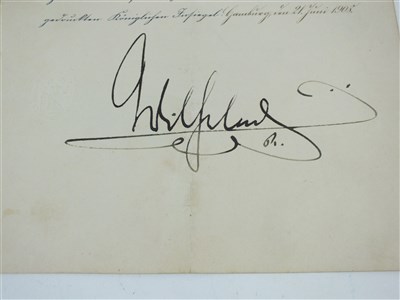 gedruckten Königlichen Insiegel. Hamburg, den 21. Juni 1906.
Wilhelm
R.